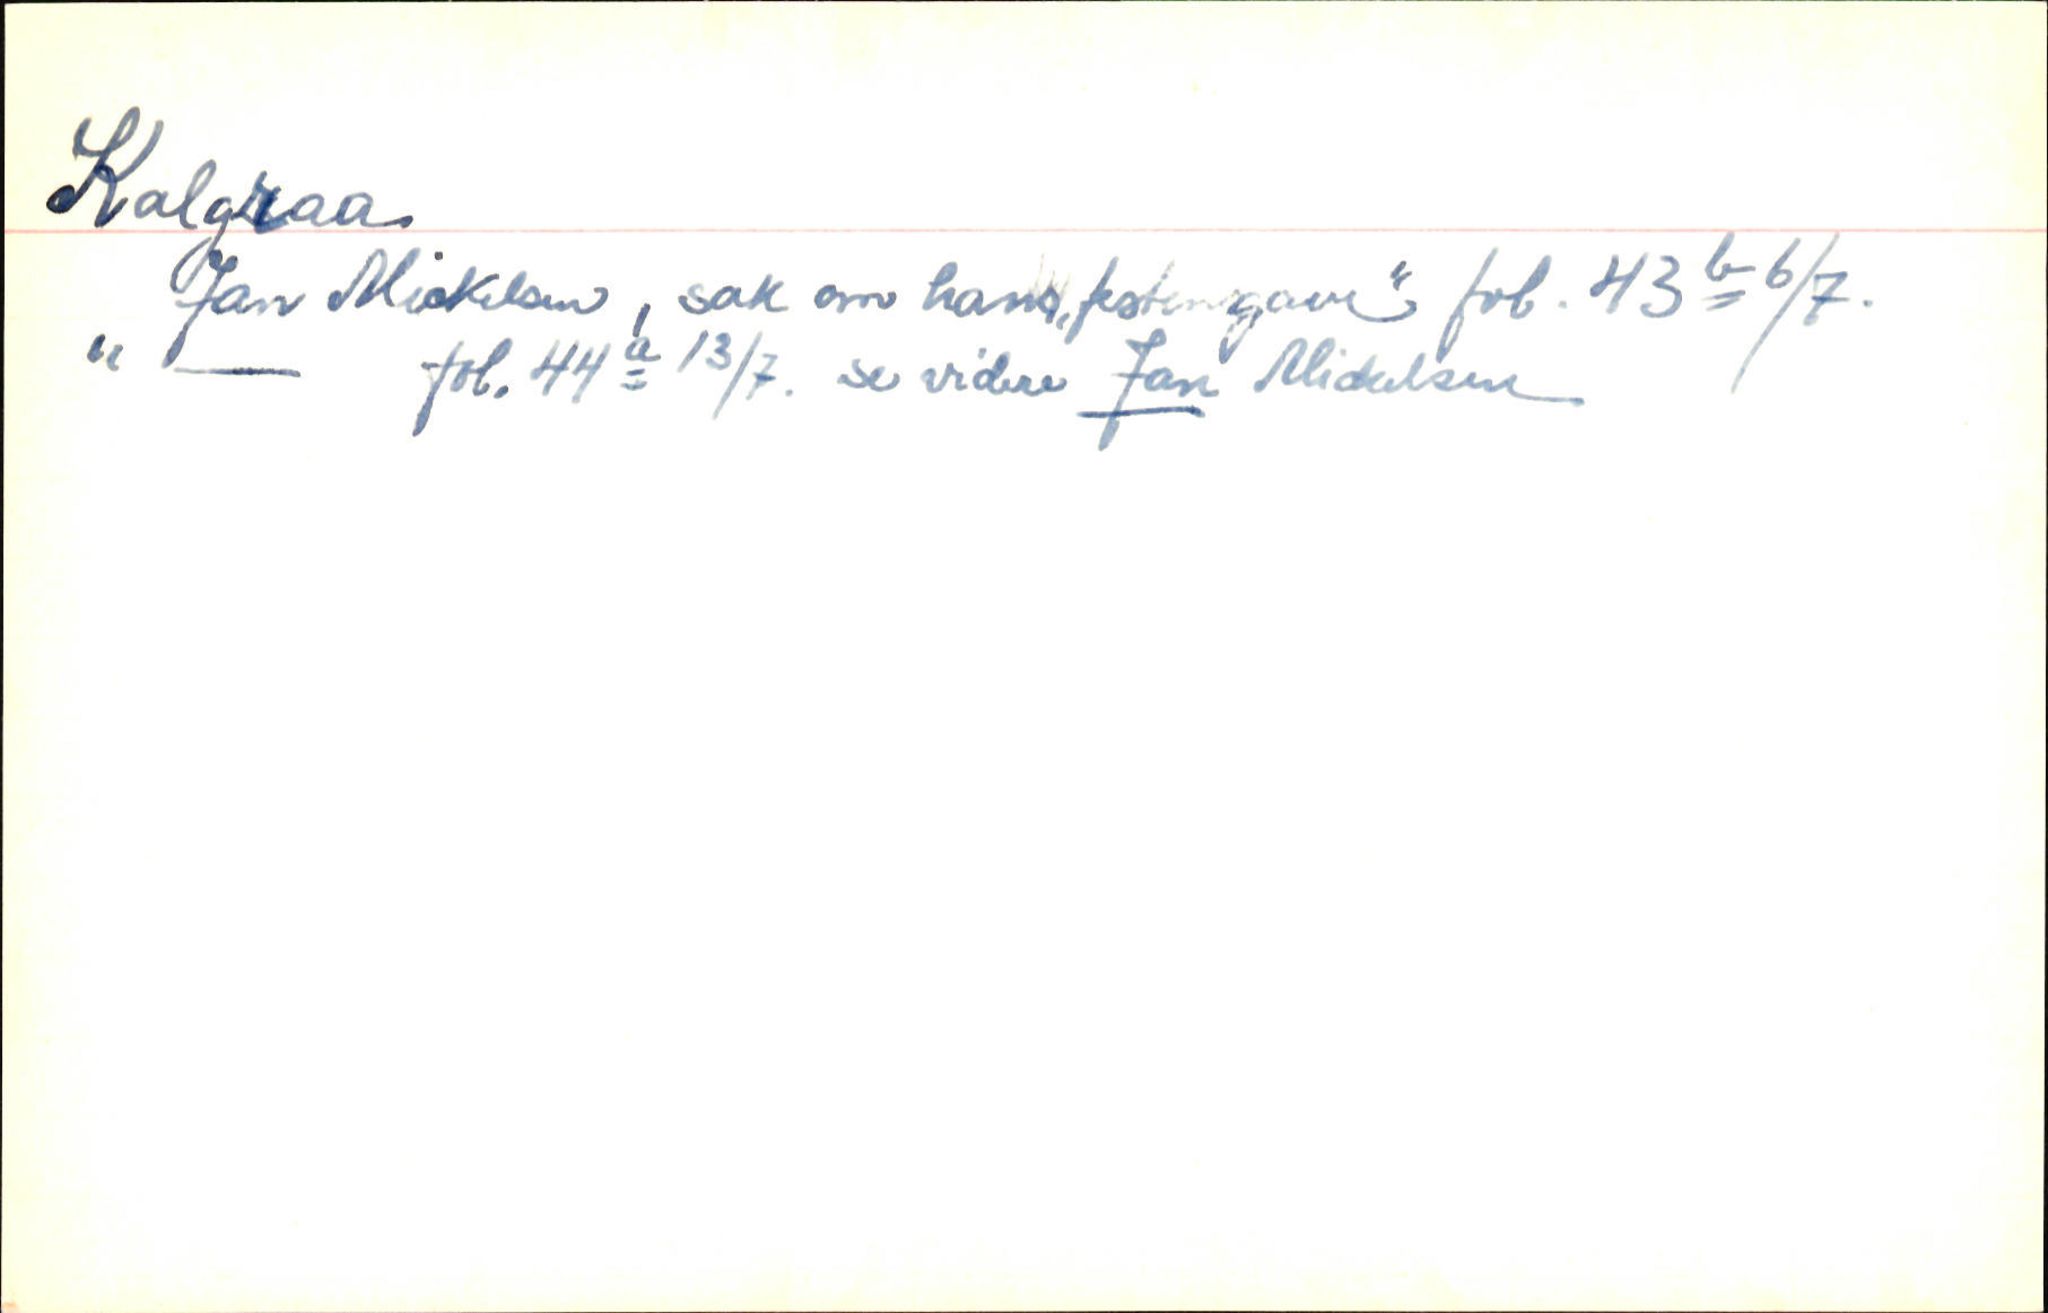 Kalgraa
Jan Mickelsen, sak om hans „festengave“ fol. 43 b 6/7.
" — fol. 44 a 13/7. se videre Jan Mickelsen